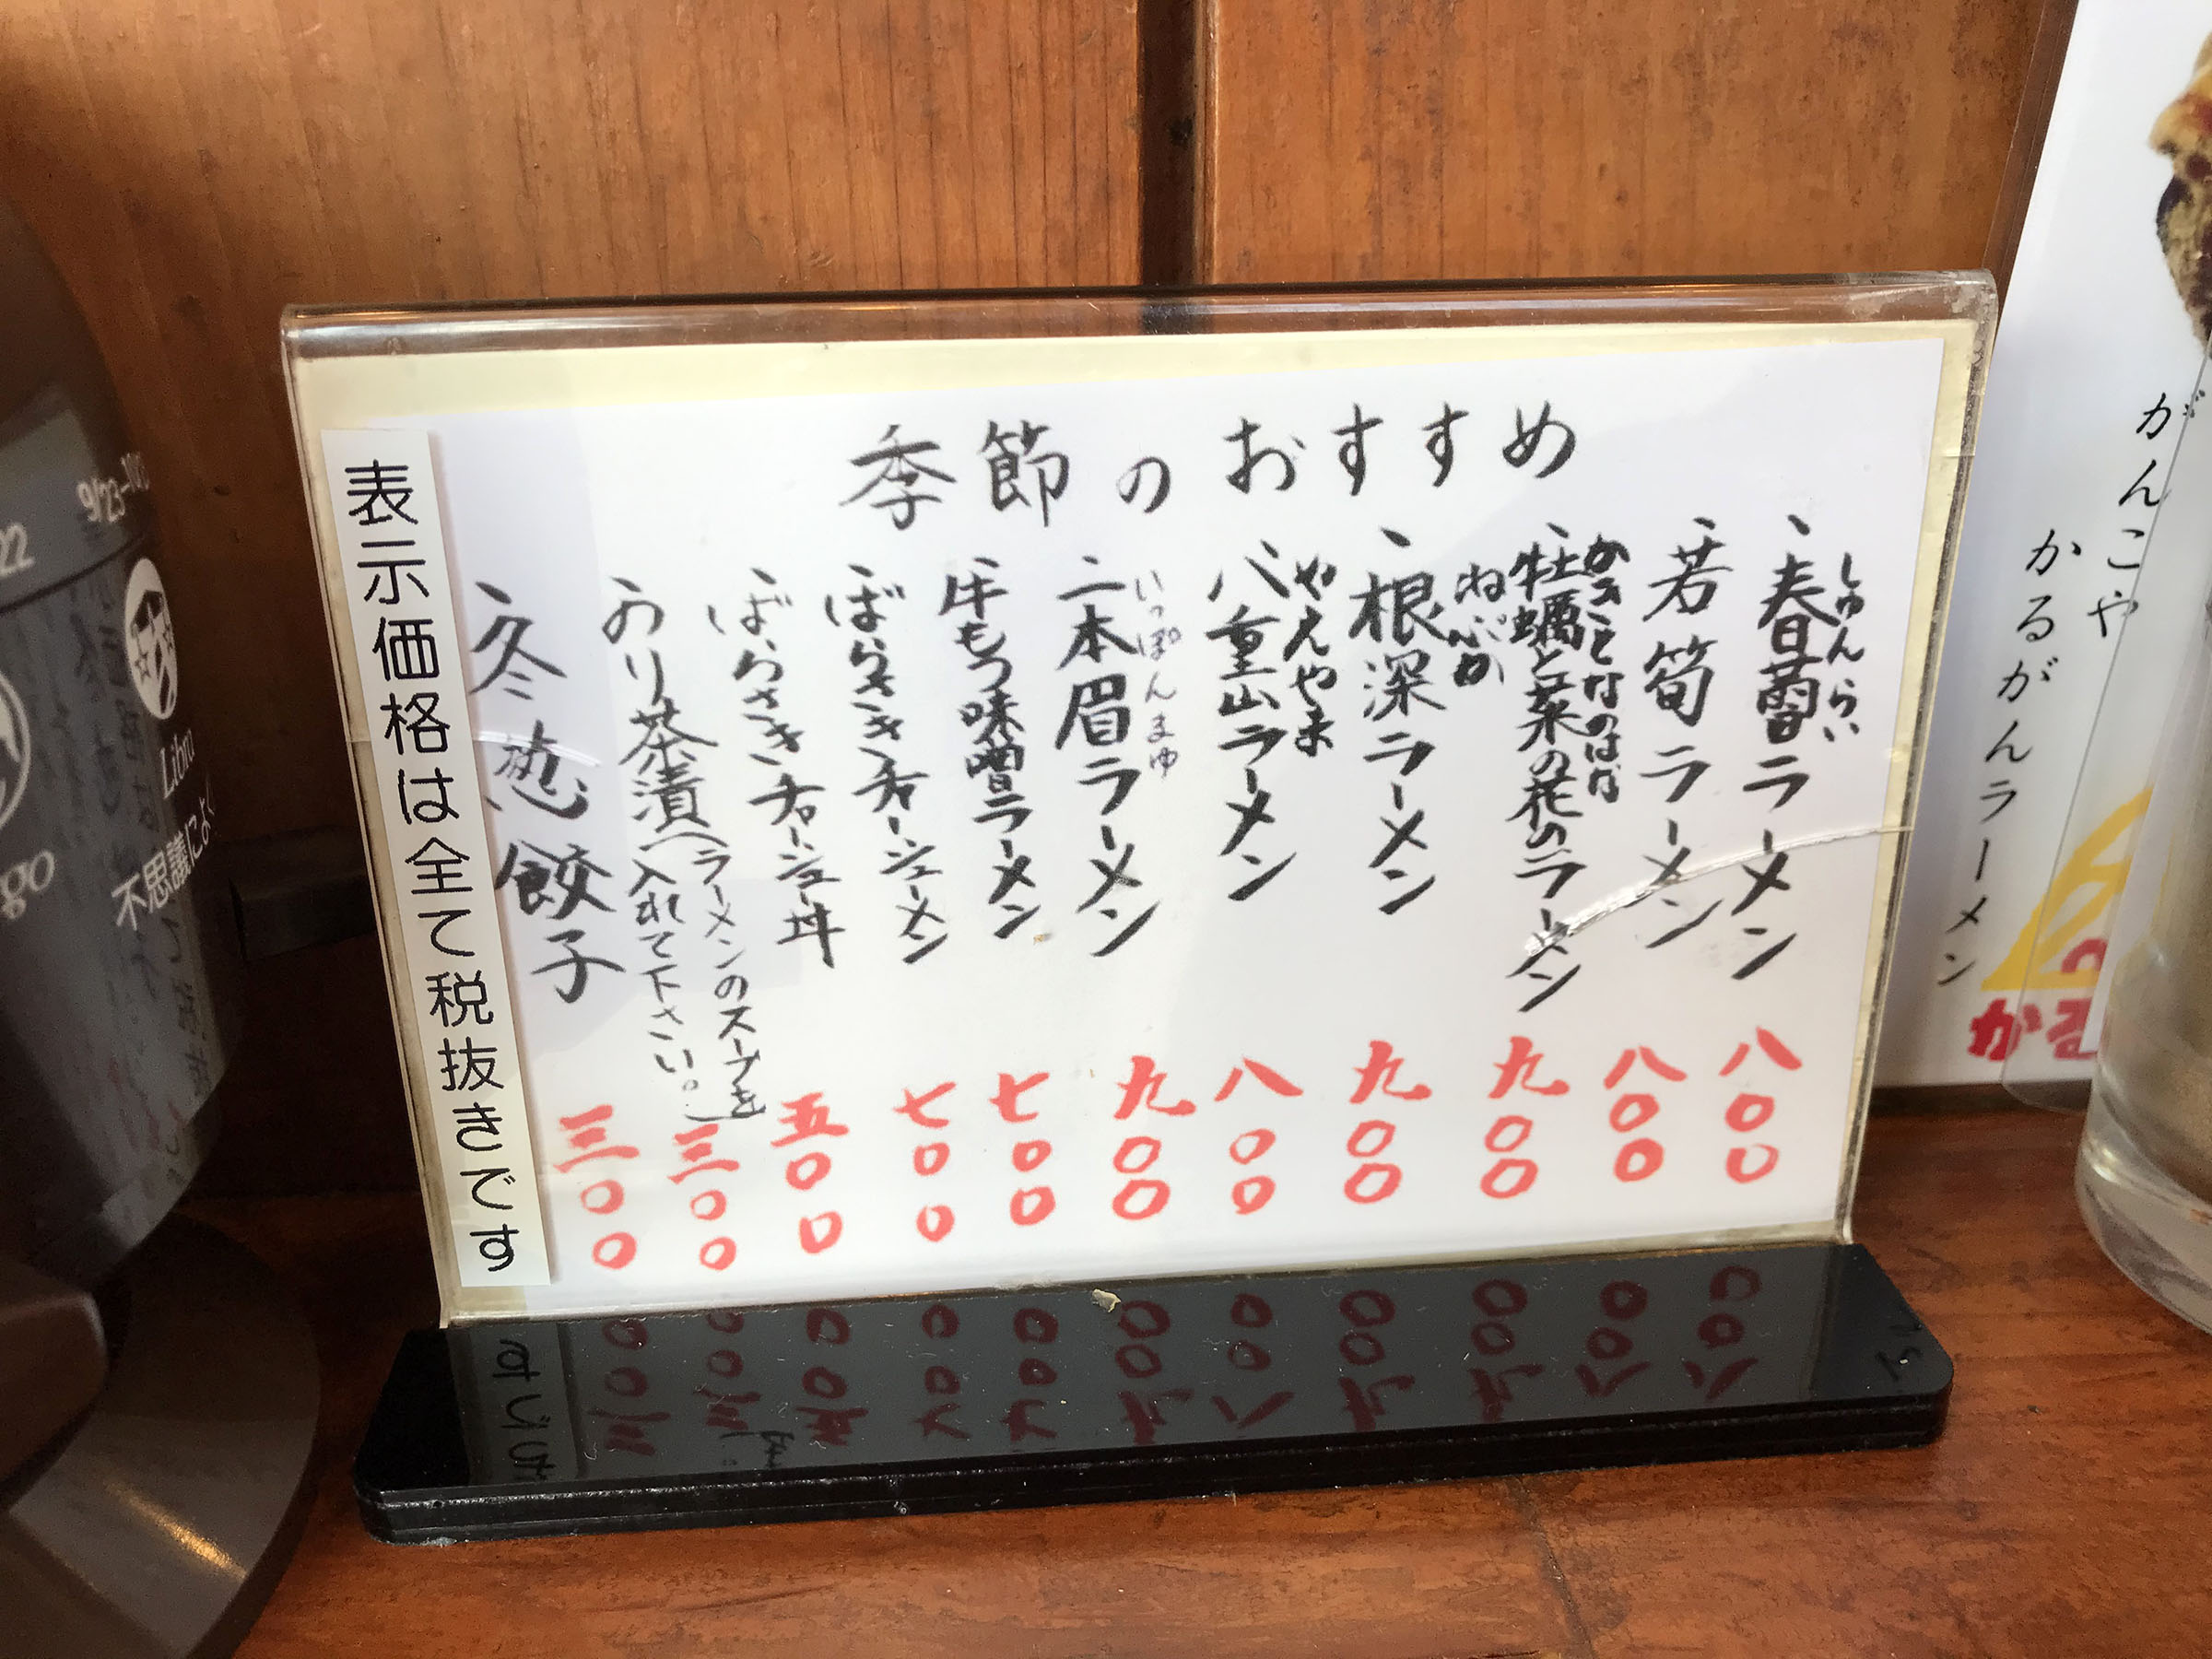 季節のおすすめ
、春蕾ラーメン 八〇〇
しゅんらい
、若筍ラーメン 八〇〇
、牡蠣と菜の花のラーメン 九〇〇
かきとなのはな
、根深ラーメン 九〇〇
ねぶか
、八重山ラーメン 八〇〇
やえやま
、一本眉ラーメン 九〇〇
いっぽんまゆ
、牛もつ味噌ラーメン 七〇〇
、ばらさきチャーシューメン 七〇〇
、ばらさきチャーシュー丼 五〇〇
、のり茶漬(ラーメンのスープを
入れて下さい。) 三〇〇
、冬葱餃子 三〇〇
表示価格は全て税抜きです
がんこや
かるがんラーメン
かる
9/23-
22
Libra
不思議によく
go